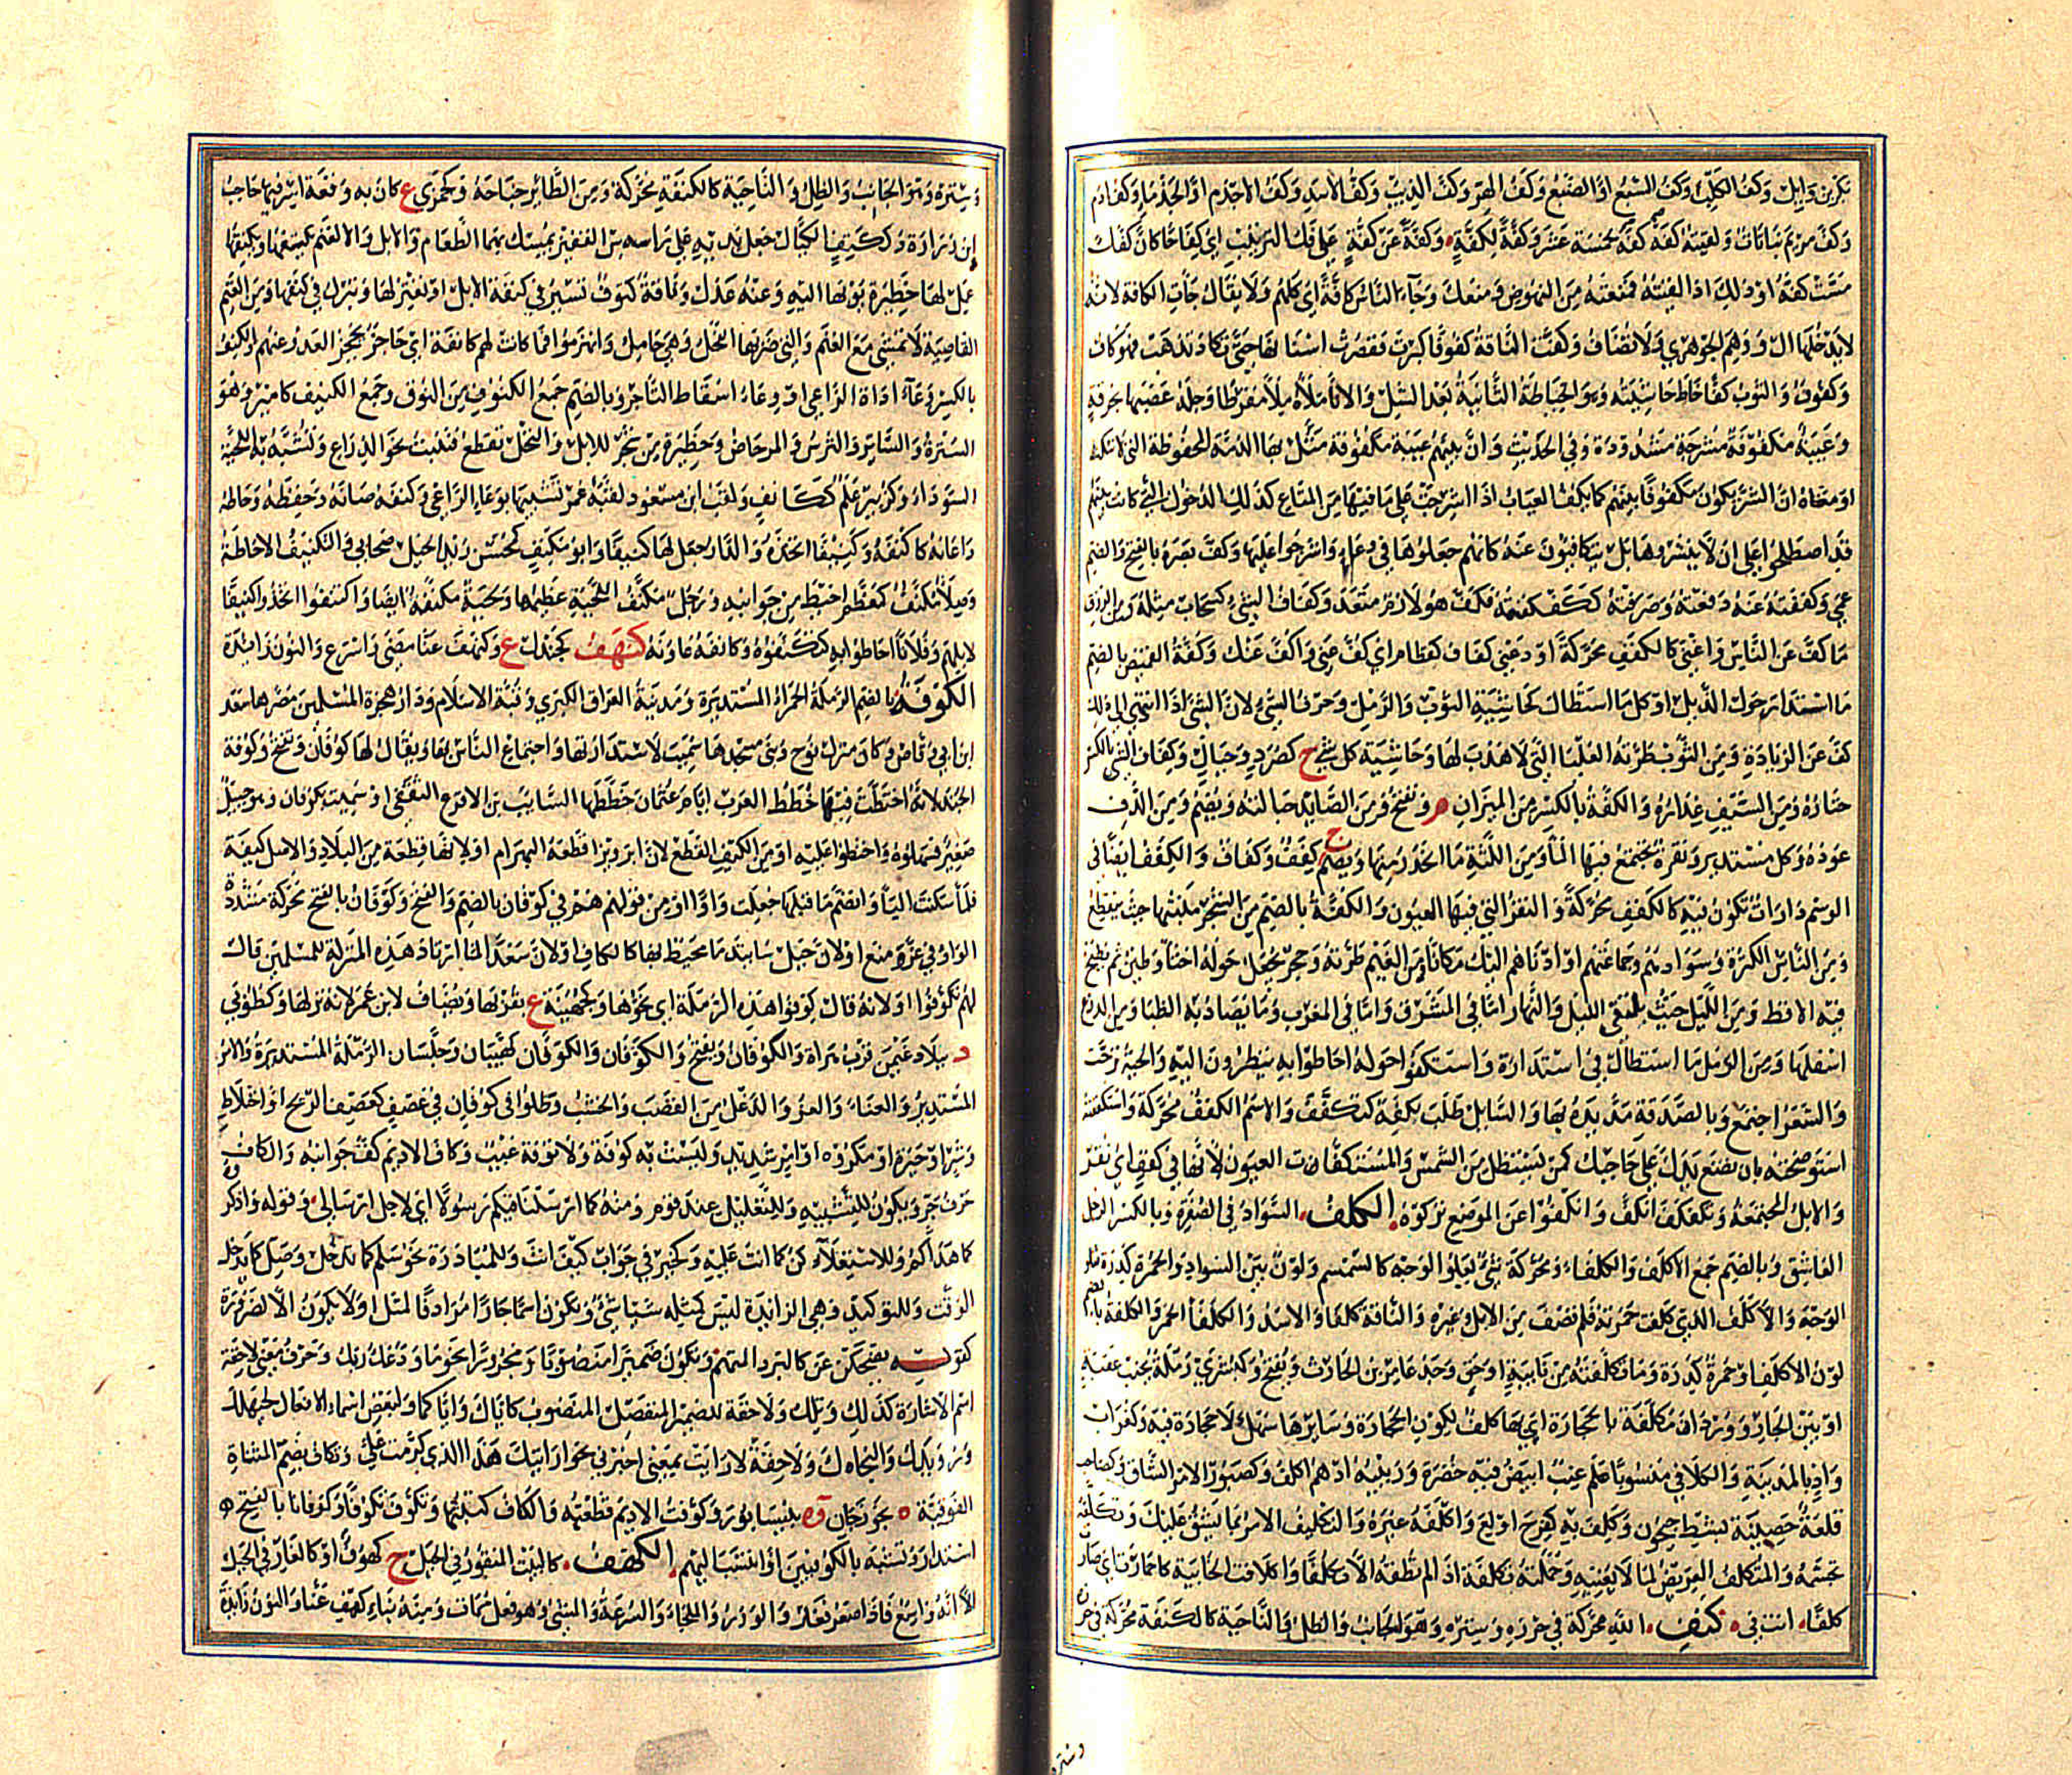 بكر بن وايل وكف الكلب وكف السبع او الضبع وكف الهر وكف الذيب وكف الاسد وكف الاجذم او الجذما وكف ادم
وكف مريم نباتات ولقيته كفة كفة كخمسة عشر وكفة لكفة وكفة عن كفة على فك التركيب اي كفاحا كان كفك
مست كفه او ذلك اذا لقيته فمنعته من النهوض ومنعك وجاء الناس كافة اي كلهم ولا يقال جات الكافة لانه
لا يدخلها ال ووهم الجوهري ولا تضاف وكفت الناقة كفوفا كبرت فقصرت اسنانها حتى تكاد تذهب فهو كاف
وكفوف والثوب كفا خاط حاشيته وهو الخياطة الثانية بعد الشل والانا ملاه ملا مفرطا وجله عصبها بخرقة
وعيبة مكفوفة مشرجة مشدودة وفي الحديث وان بينهم عيبة مكفوفة مثل بها الذمة المحفوظة التي لا تنكث
او معناه ان الشر يكون مكفوفا بينهم كما تكف العياب اذا اشرجت على ما فيها من المتاع كذلك الدخول التي كانت بينهم
قد اصطلحوا على ان لا ينشروها بل يتكافون عنه كانهم جعلوها في وعاء واشرجوا عليها وكف بصره بالفتح والضم
عمي وكففته عنه دفعته وصرفته ككفكفته فكف هو لازم متعد وكفاف الشي كسحاب مثله ومن الرزق
ما كف عن الناس واغنى كالكفف محركة او دعني كفاف كقطام اي كف عني واكف عنك وكفة القميص بالضم
ما استدار حول الذيل او كل ما استطال كحاشية الثوب والرمل وحرف الشي لان الشي اذا انتهى الى ذلك
كف عن الزيادة ومن الثوب طرته العليا التي لا هدب لها وحاشية كل شي ج كصرد وجبال وكفاف الشي بالكسر
حتاره ومن السيف غراره والكفة بالكسر من الميزان م وتفتح ومن الصايد حبالته ويضم ومن الدف
عوده وكل مستدير ونقرة يجتمع فيها الما ومن اللثة ما انحدر منها ويضم ج كفف وكفاف والكفف ايضا في
الوشم دارات تكون فيه كالكفف محركة والنقر التي فيها العيون والكفة بالضم من الشجر منتهاها حيث ينقطع
ومن الناس الكثرة وسوادهم وجماعتهم او ادناهم اليك مكانا ومن الغيم طرته وحجر يجعل حوله اخثا وطين ثم يطبخ
فيه الاقط ومن الليل حيث يلتقي الليل والنهار اما في المشرق واما في المغرب وما يصاد به الظبا ومن الدرع
اسفلها ومن الرمل ما استطال في استدارة واستكفوا حوله احاطوا به ينظرون اليه والحية ترحت
والشعر اجتمع وبالصدقة مد يده بها والسايل طلب بكفه كتكفف والاسم الكفف محركة واستكففته
استوضحته بان تضع يدك على حاجبك كمن يستظل من الشمس والمستكفات العيون لانها في كفف اي نقر
والابل المجتمعة وتكفكف انكف وانكفوا عن الموضع تركوه الكلف السواد في الصفرة وبالكسر الرجل
العاشق وبالضم جمع الاكلف والكلفاء ومحركة شي يعلو الوجه كالسمسم ولون بين السواد والحمرة كدرة تعلو
الوجه والاكلف الذي كلفت حمرته فلم تصف من الابل وغيره والناقة كلفا والاسد والكلفا الخمر والكلفة بالضم
لون الاكلف او حمرة كدرة وما تكلفته من نايبة او حق وجد عامر بن الحارث ويفتح وكبشرى رملة بجنب غيقة
او بين الجار وودان مكلفة بالحجارة اي بها كلف للون الحجارة وسايرها سهل لا حجارة فيه وكغراب
واد بالمدينة والكلافي منسوبا علم عنب ابيض فيه خضرة وزبيبه ادهم اكلف وكصبور الامر الشاق وكصاحب
قلعة حصينة بشط جيحون وكلف به كفرح اولع واكلفه غيره والتكليف الامر بما يشق عليك وتكلفه
تجشمه والمتكلف العريض لما لا يعنيه وحملته تكلفة اذا لم تطقه الا تكلفا واكلافت الخابية كاحمارت اي صارت
كلفا انت في كنف الله محركة في حرزه وستره وهو الجانب والظل والناحية كالكنفة محركة في حرزه
وستره
وستره وهو الجانب والظل والناحية كالكنفة محركة ومن الطائر جناحه وكجمزى ع كان به وقعة اسر فيها حاجب
ابن زرارة وككتف الكيال جعل يديه على راسه من القفيز يمسك بهما الطعام والابل والغنم يكنفها ويكنفها
عمل لها حظيرة يؤويها اليه وعنه عدل وناقة كنوف تسير في كنفة الابل او تعتزلها وتبرك في كنفها ومن الغنم
القاصية لا تمشي مع الغنم والتي ضربها الفحل وهي حامل وانهزموا فما كانت لهم كانفة اي حاجز يحجز العدو عنهم والكنف
بالكسر وعاء اداة الراعي او وعاء اسقاط التاجر وبالضم جمع الكنوف من النوق وجمع الكنيف كامير وهو
السترة والساتر والترس والمرحاض وحظيرة من شجر للابل والنخل تقطع فتنبت نحو الذراع وتشبه به اللحية
السوداء وكزبير علم ككانف ولقب ابن مسعود لقبه عمر تشبيها بوعاء الراعي وكنفه صانه وحفظه وحاطه
واعانه كاكنفه وكنيفا اتخذه والدار جعل لها كنيفا وابو مكنف كمحسن زيد الخيل صحابي والتكنيف الاحاطة
وصلا مكنف كمعظم احيط من جوانبه ورجل مكنف اللحية عظيمها ولحية مكنفة ايضا واكتنفوا اتخذوا كنيفا
لابلهم وفلانا احاطوا به كتكنفوه وكانفه عاونه كنهف كجندل ع وكنهف عنا مضى واسرع والنون زائدة
الكوفة بالضم الرملة الحمراء المستديرة ومدينة العراق الكبرى وقبة الاسلام ودار هجرة المسلمين مصرها سعد
ابن ابي وقاص وكان منزل نوح وبنى مسجدها سميت لاستدارتها واجتماع الناس بها ويقال لها كوفان وتفتح وكوفة
الجند لانه اختطت فيها خطط العرب ايام عثمان خططها السايب بن الاقرع الثقفي او سميت بكوفان وهو جبيل
صغير فسهلوه واختطوا عليه او من الكيف القطع لان ابرويز اقطعه لبهرام او لانها قطعة من البلاد والاصل كيفة
فلما سكنت اليا وانضم ما قبلها جعلت واوا او من قولهم هم في كوفان بالضم والفتح وكوفان بالفتح محركة مشددة
الواو في عز ومنع او لان جبل ساتيدما محيط بها كالكاف او لان سعدا لما ارتاد هذه المنزلة للمسلمين قال
لهم تكوفوا او لانه قال كوفوا هذه الرملة اي نحوها وكجهينة ع بقربها ويضاف لابن عمر لانه نزلها وكطوبى
د ببلاد غيس قرب هراة والكوفان ويفتح والكوفان والكوفان كهيبان وجلسان الرملة المستديرة والامر
المستدير والعناء والعز والدغل من القصب والخشب وظلوا في كوفان في عصف كعصف الريح او اختلاط
وشر او حيرة او مكروه او امر شديد وليست به كوفة ولا توفة عيب وكاف الاديم كف جوانبه والكاف
حرف جر ويكون للتشبيه وللتعليل عند قوم ومنه كما ارسلنا فيكم رسولا اي لاجل ارسالي وقوله واذكروه
كما هداكم وللاستعلاء كن كما انت عليه وكخير في جواب كيف انت وللمبادرة نحو سلم كما تدخل وصل كما يدخل
الوقت وللتوكيد وهي الزائدة ليس كمثله شي وتكون اسما جارا مرادفا لمثل او لا يكون الا لضرورة
كقوله يضحكن عن كالبرد المنهم وتكون ضميرا منصوبا ومجرورا نحو ما ودعك ربك وحرف معنى لاحقة
اسم الاشارة كذلك وتلك ولاحقة للضمير المنفصل المنصوب كاياك واياكما ولبعض اسماء الافعال كحيهلك
ورويدك والنجاءك ولاحقة لارايت بمعنى اخبرني نحو ارايتك هذا الذي كرمت علي وتكاف بضم المثناة
الفوقية ة بجوزجان وة بنيسابور وكوفت الاديم قطعته والكاف كتبتها وتكوف تكوفا وكوفانا بالفتح
استدار وتشبه بالكوفيين او انتسب اليهم الكهف كالبيت المنقور في الجبل ج كهوف او كالغار في الجبل
الا انه واسع فاذا صغر فغار والوزر والملجاء والسرعة والمشي وهو فعل ممات ومنه بناء كنهف عنا والنون زايدة